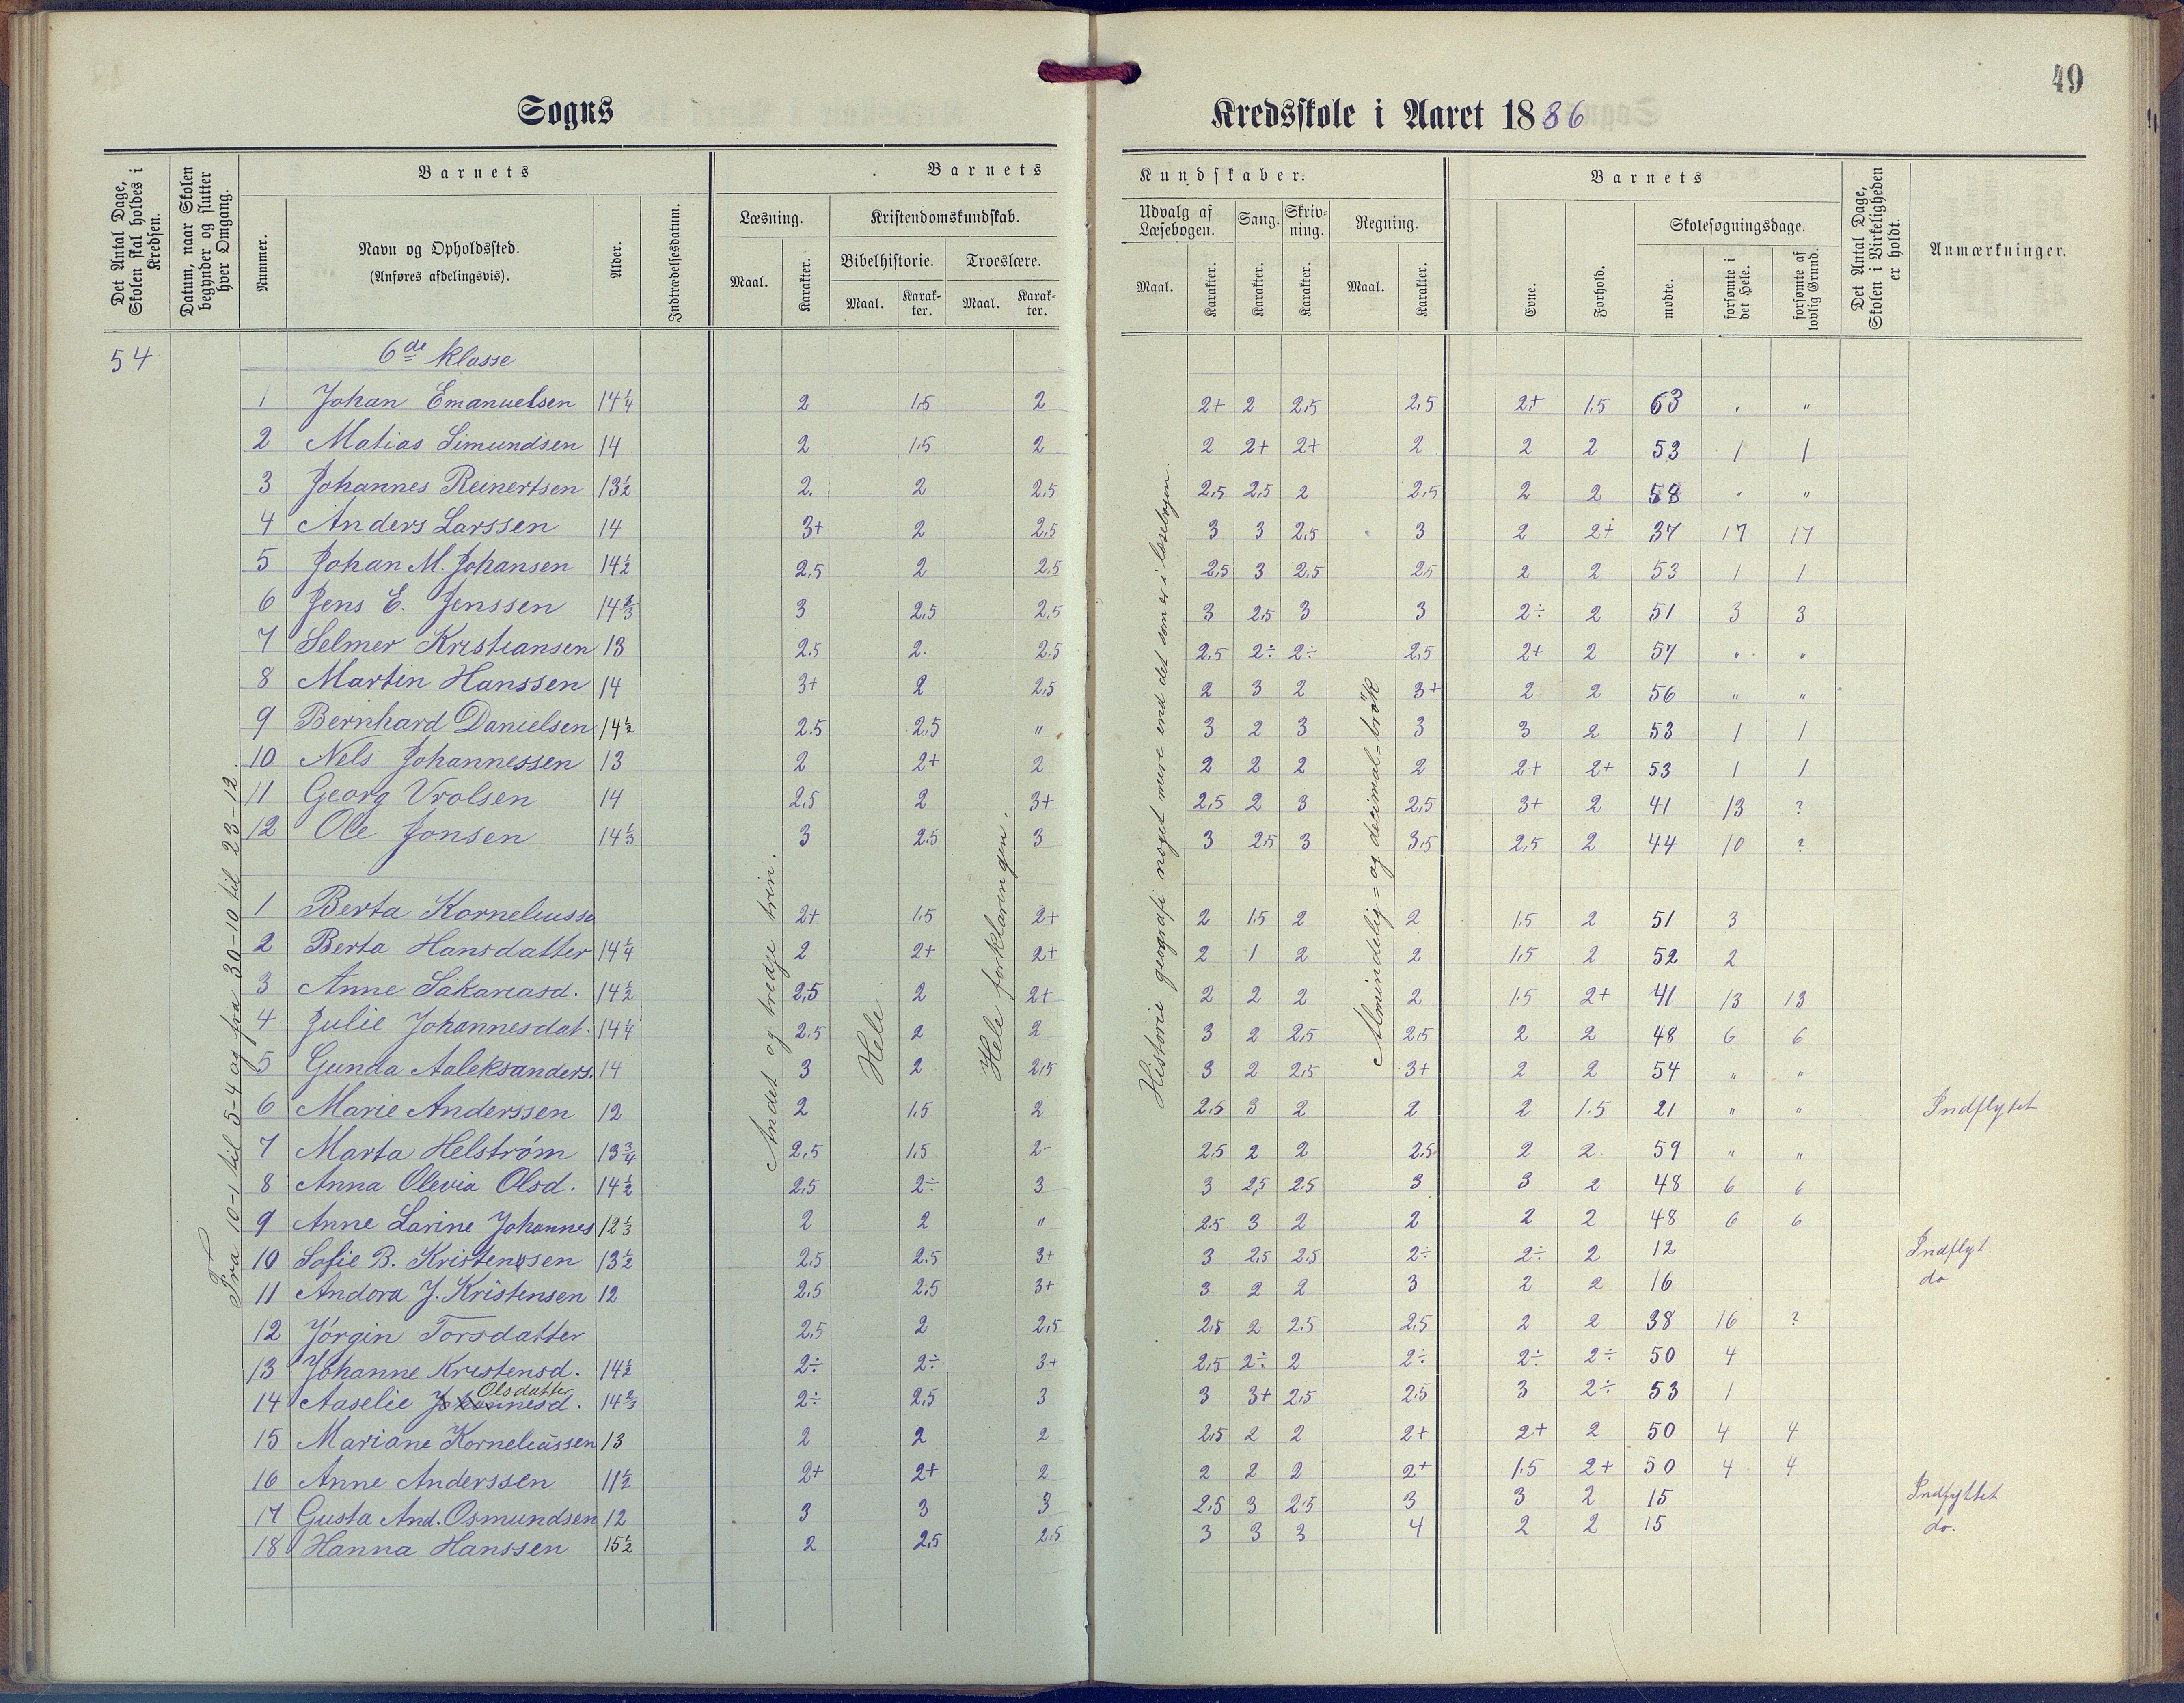 49
Sogns
Kredsskole i Aaret 1886
Det Antal Dage, Skolen skal holdes i Kredsen.
Datum, naar Skolen begynder og slutter hver Omgang.
Barnets
Nummer.
Navn og Opholdssted.
(Anføres afdelingsvis).
Alder.
Indtrædelsesdatum.
Barnets
Læsning.
Kristendomskundskab.
Maal.
Karakter.
Bibelhistorie.
Troeslære.
Maal.
Karakter.
Maal.
Karakter.
Kundskaber.
Udvalg af Læsebogen.
Sang.
Skrivning.
Regning.
Maal.
Karakter.
Karakter.
Karakter.
Maal.
Karakter.
Barnets
Evne.
Forhold.
Skolesøgningsdage.
mødte.
forsømte i det Hele.
forsømte af lovlig Grund.
Det Antal Dage, Skolen i Virkeligheden er holdt.
Anmærkninger.
54
6de klasse
Fra 10-1 til 5-4 og fra 30-10 til 23-12.
Andet og tredje trin.
Hele
Hele forklaringen.
Historie geografi noget mere end det som er i læsebogen.
Almindelig= og decimal-brøk
1 Johan Emanuelsen 14 1/4 2 1.5 2 2+ 2 2.5 2.5 2+ 1.5 63 " "
2 Matias Simundsen 14 2 1.5 2 2 2+ 2+ 2 2 2 53 1 1
3 Johannes Reinertsen 13 1/2 2. 2 2.5 2.5 2.5 2 2.5 2 2 58 " "
4 Anders Larssen 14 3+ 2 2.5 3 3 2.5 3 2 2+ 37 17 17
5 Johan M. Johansen 14 1/2 2.5 2 2.5 2.5 3 2.5 2.5 2 2 53 1 1
6 Jens E. Jenssen 14 2/3 3 2.5 2.5 3 2.5 3 3 2÷ 2 51 3 3
7 Selmer Kristiansen 13 2.5 2. 2.5 2.5 2÷ 2÷ 2.5 2+ 2 57 " "
8 Martin Hanssen 14 3+ 2 2.5 2 3 2 3+ 2 2 56 " "
9 Bernhard Danielsen 14 1/2 2.5 2.5 " 3 2 3 3 3 2 53 1 1
10 Nels Johannessen 13 2 2+ 2 2 2 2 2 2+ 2+ 53 1 1
11 Georg Vrolsen 14 2.5 2 3+ 2.5 2 3 2.5 3+ 2 41 13 ?
12 Ole Jonsen 14 1/3 3 2.5 3 3 2.5 3 3.5 2.5 2 44 10 ?
1 Berta Korneliusse 2+ 1.5 2+ 2 1.5 2 2 1.5 2 51 3
2 Berta Hansdatter 14 1/4 2 2+ 2+ 2 1 2 2 1.5 2 52 2
3 Anne Sakariasd. 14 1/2 2,5 2 2+ 2 2 2 2 1.5 2+ 41 13 13
4 Julie Johannesdat. 14 1/4 2.5 2 2 3 2 2.5 2.5 2 2 48 6 6
5 Gunda Aaleksanders. 14 3 2 2.5 3 2 2.5 3+ 2 2 54 " "
6 Marie Anderssen 12 2 1.5 2 2.5 3 2 2 2 1.5 21 " " Indflytet
7 Marta Helstrøm 13 3/4 2.5 1.5 2- 2.5 2 2 2.5 2 2 59 " "
8 Anna Olevia Olsd. 14 1/2 2.5 2÷ 3 3 2.5 2.5 3 3 2 48 6 6
9 Anne Larine Johannes 12 1/3 2 2 " 2.5 3 2 2 2 2 48 6 6
10 Sofie B. Kristensen 13 1/2 2.5 2.5 3+ 3 2.5 2.5 2÷ 2÷ 2 12 Indflyt.
11 Andora J. Kristensen 12 2.5 2.5 3+ 3 2 2 3 2 2 16 do
12 Jørgin Torsdatter 2.5 2 2.5 2.5 2 2.5 2.5 2 2 38 16 ?
13 Johanne Kristensd. 14 1/2 2÷ 2÷ 3+ 2.5 2÷ 2 2÷ 2÷ 2÷ 50 4
14 Aaselie Johannesd. Olsdatter 14 2/3 2÷ 2.5 3 3 3+ 2.5 2.5 3 2÷ 53 1
15 Mariane Korneliussen 13 2 2 2 2.5 2 2 2+ 2+ 2 50 4 4
16 Anne Anderssen 11 1/2 2+ 2+ 2 2 2 2 2+ 1.5 2+ 50 4 4
17 Gusta And. Osmundsen 12 3 3 3 2.5 3 2.5 3 3 2 15 Indflyttet
18 Hanna Hanssen 15 1/2 2 2.5 2.5 3 3 3 4 2 2 15 do.